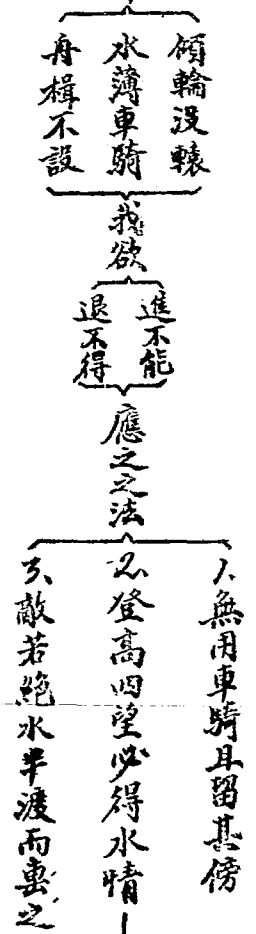 傾輪没轅
水薄車騎
舟楫不設
我欲
進不能
退不得
應之之法
1、無用車騎且留其傍
2、登高四望必得水情
3、敵若絕水半渡而擊之